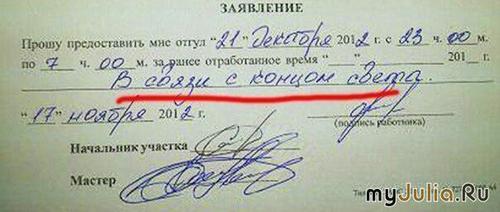 ЗАЯВЛЕНИЕ
Прошу предоставить мне отгул "21" Декабря 2012 с 23 ч. 00 м.
по 7 ч. 00 м. за ранее отработанное время "___" ________ 201__ г.
В связи с концом света.
"17" ноября 2012 г.
(подпись работника)
Начальник участка
Мастер
myJulia.Ru